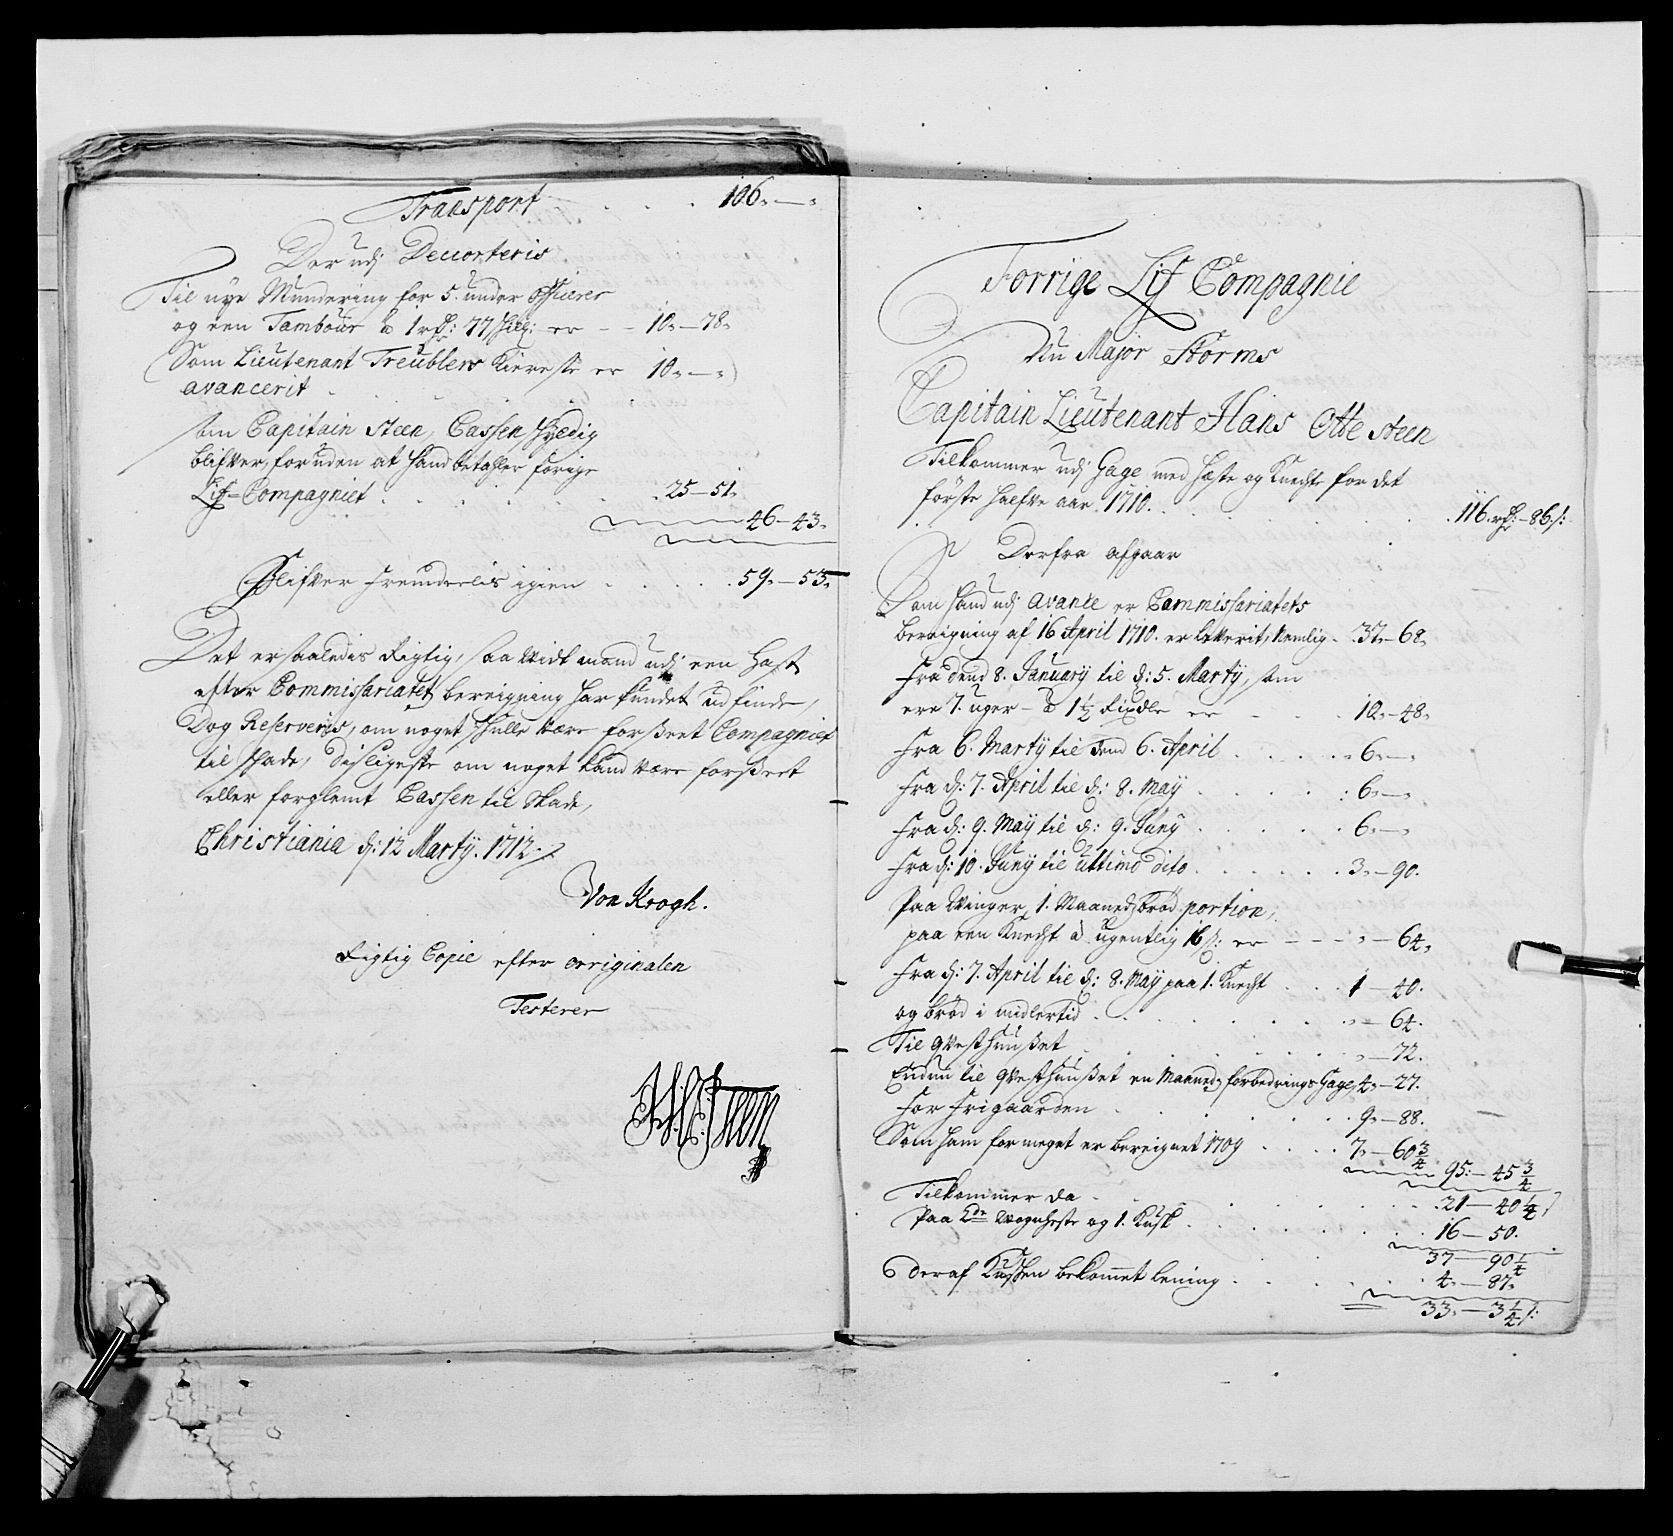 Transport . . . 106„—„
Der udj Decorteris
Til nye Mundering for 5. under Officerer
og een Tambour à 1 rdr: 77 skil: er — 10„—78„
(Som Lieutenant Treublers Kiereste er 10„—„)
avancerit
som Capitain Steen, Cassen skyldig
blifver, foruden at hand betahler forige
Lif-Compagniet . . . . 25—51„
46—43„
Blifver fremdeelis igien . . . . 59„—53„
Det er saaledis Rigtig, saa vidt mand udj een Hast
efter Commissariatets bereigning har kundet udfinde,
Dog Reserveris, om noget skulle være forseet Compagniet
til skade, disligeste om noget kand være forseet
eller forglemt Cassen til skade,
Christiania d: 12 Martÿ. 1712 ./.
Von Krogh.
Rigtig Copie efter originalen
Testerer
HOSteen
Forrige Lif Compagnie
Nu Major Storms
Capitain Lieutenant Hans Otte Steen
Tilkommer udj Gage med heste og Knechte for det
første halfve aar 1710. . . . 116. rdr:—86 /:
Derfra afgaar
Som hand udj avance er Commissariatets
bereigning af 16 April 1710. er leverit, Nemlig . 37„—68„
Fra dend 8. Januarÿ til d: 5. Martÿ, som
ere 7. uger — à 1½ Rixdlr er . . . 10„—48„
Fra 6. Martÿ til dend 6. April . . . . 6„—„
Fra d: 7. April til d: 8. Maÿ . . . . : 6„—„
Fra d: 9. Maÿ til d: 9. Junÿ . . . . 6„—„
Fra d: 10. Junÿ til ultimo dito . . . . 3„—90.
Paa Winger 1. Maaneds brød portion,
paa een Knecht à ugentlig 16 s: er — — — „—64„
Fra d: 7. April til d: 8. Maÿ paa 1. Knecht . . . 1—40.
og brød i midlertid . . . . „—64.
Til qvesthuuset . . . . „—72.
Endnu til qvesthuuset en Maaneds forbedrings Gage 4„—27.
For frigaarden . . . . 9„—88.
Som ham for meget er bereignet 1709 . . . . 7„—60¾
95:—45¾
Tilkommer da . . . . 21—40¼
Paa 2de Wognheste og 1. Kusk . . . . 16—50.
37—90¼
deraf Kusken bekommet lening . . . . 4„—87„
33„—3¼ /: